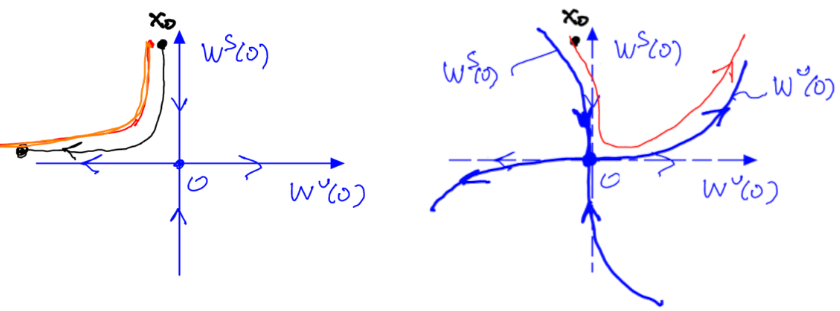 x₀
Wˢ(0)
0
Wᵘ(0)
x₀
Wˢ(0)
Wˢ(0)
Wᵘ(0)
0
Wᵘ(0)